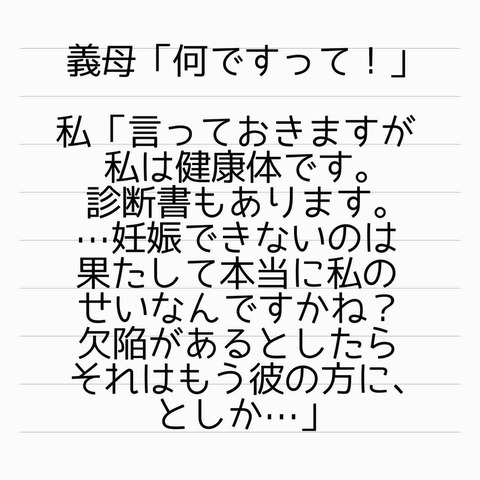 義母「何ですって！」
私「言っておきますが
私は健康体です。
診断書もあります。
…妊娠できないのは
果たして本当に私の
せいなんですかね？
欠陥があるとしたら
それはもう彼の方に、
としか…」